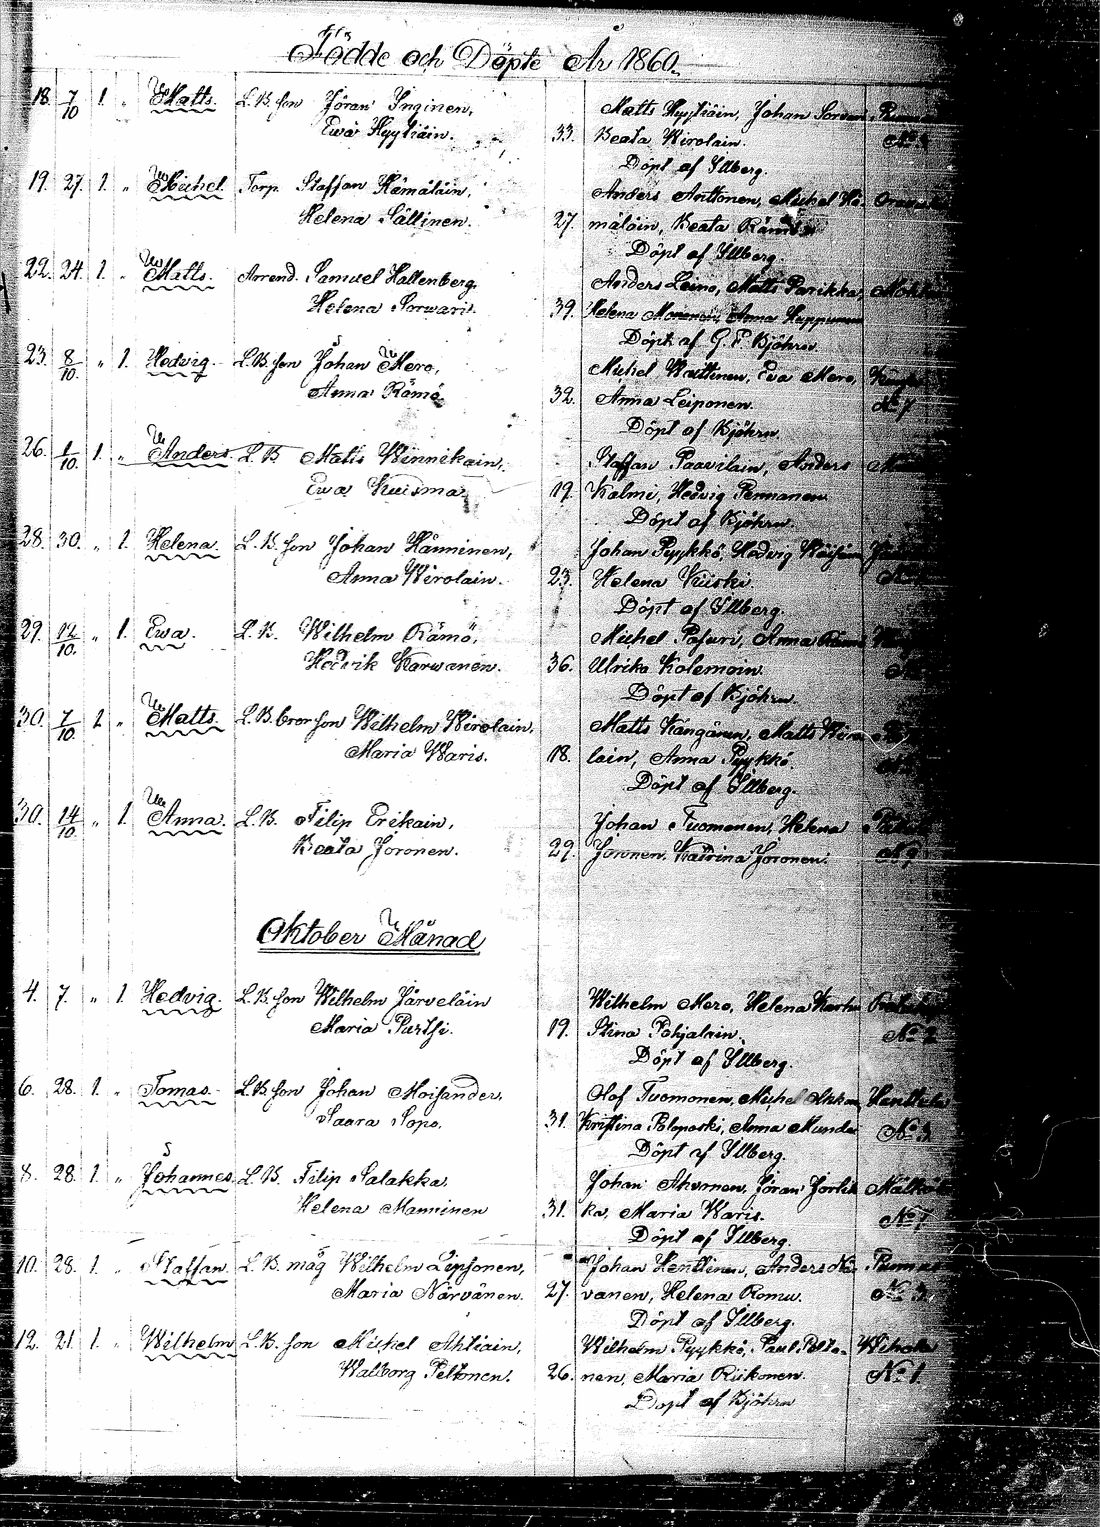 Födde och Döpte År 1860.
18. 7/10 1. " Matts. L. B. son Jöran Inginen, Matts Hyytiäin, Johan Sorvar
Ewa Hyytiäin. 33. Beata Wirolain. No
Döpt af Illberg.
19. 27. 1. " Michel. Torp. Staffan Hämäläin, Anders Anttonen, Michel Hä-
Helena Sällinen. 27. mäläin, Beata Rämö
Döpt af Illberg.
22. 24. 1. " Matts. Arrend. Samuel Hallenberg. Anders Leino, Matts Parikka,
Helena Sorwari. 39. Helena Mononen, Anna Huppunen
Döpt af G. F. Björkn
23. 8/10. " 1. Hedvig. L. B. son Johan Mero, Michel Wattinen, Eva Mero,
Anna Rämö 32. Anna Leiponen. No 7
Döpt af Björkn
26. 1/10. 1. " Anders. L. B. Matts Winnikain, Staffan Paavilain, Anders
Ewa Kuisma 19. Kalmi, Hedvig Pennanen
Döpt af Björkn.
28. 30. " 1. Helena. L. B. son Johan Hänninen, Johan Pyykkö, Hedvig Häihänin
Anna Wirolain. 23. Helena Kiiski.
Döpt af Illberg.
29. 12/10. " 1. Ewa. L. B. Wilhelm Rämö, Michel Pasuri, Anna Rämö
Hedvik Karwanen. 36. Ulrika Kolemain.
Döpt af Björkn.
30. 7/10 1. " Matts. L. B. bror son Wilhelm Wirolain, Matts Kängärin, Matts Wiro
Maria Waris. 18. lain, Anna Pyykkö.
Döpt af Illberg.
30. 14/10. " 1. Anna. L. B. Filip Erikain, Johan Tuomonen, Helena
Beata Joronen. 29. Joronen, Katrina Joronen. No 9
Oktober Månad
4. 7. " 1. Hedvig. L. B. son Wilhelm Järveläin Wilhelm Mero, Helena Karhu
Maria Purtsi. 19. Stina Pohjalain. No 2
Döpt af Illberg.
6. 28. 1. " Tomas. L. B. son Johan Moisander, Olof Tuomonen, Michel Akkan, Hanttula
Saara Sopo. 31. Kristina Poloposki, Anna Munder No 3
Döpt af Illberg.
8. 28. 1. " Johannes. L. B. Filip Salakka. Johan Ahvonen, Jöran Jorlik Mälkölä
Helena Manninen 31. ka, Maria Waris. No 1
Döpt af Illberg.
10. 28. 1. " Staffan. L. B. måg Wilhelm Lipsonen, Johan Henttinen, Anders När-
Maria Närvänen. 27. vänen, Helena Romu. No 3.
Döpt af Illberg.
12. 21. 1. " Wilhelm L. B. son Michel Ahtiain, Wilhelm Pyykkö, Paul Pelto-
Walborg Peltonen. 26. nen, Maria Riikonen. No 1.
Döpt af Björkn